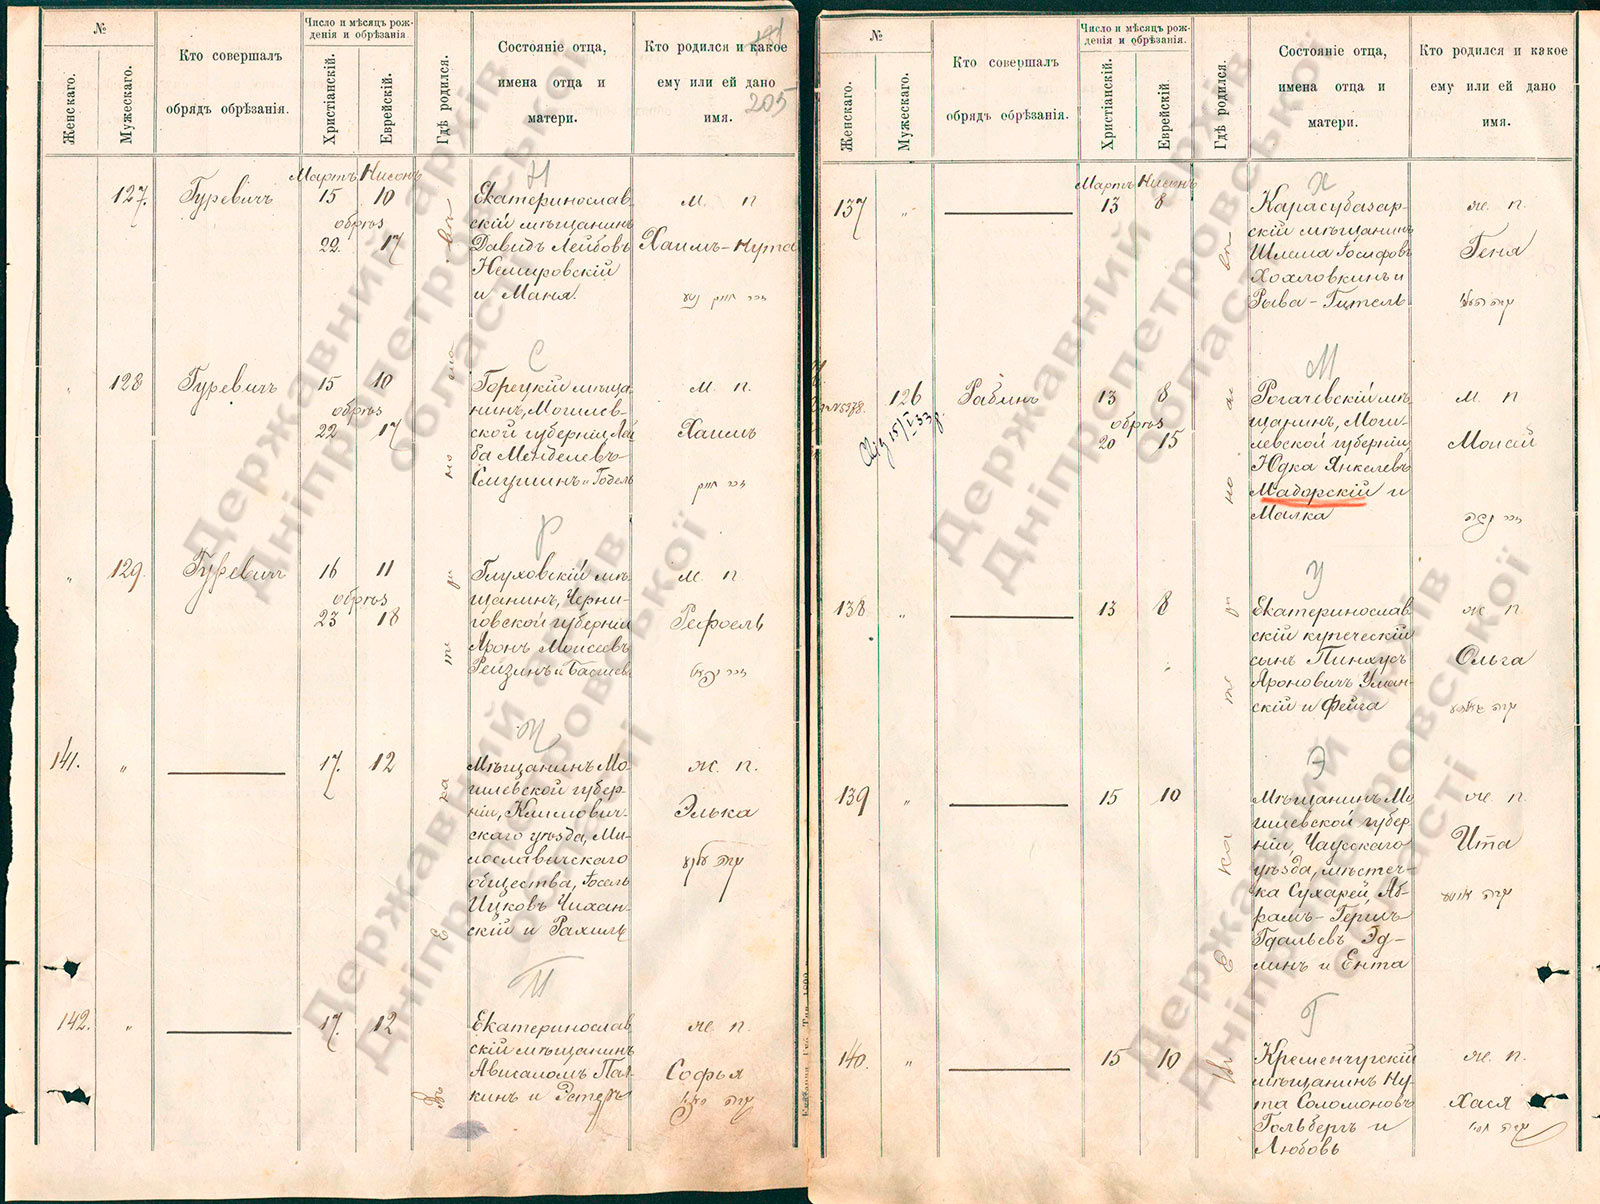 №
Женскаго.
Мужескаго.
Кто совершалъ
обрядъ обрѣзанія.
Число и мѣсяцъ рож-
денія и обрѣзанія.
Христіанскій.
Еврейскій.
Гдѣ родился.
Состояніе отца,
имена отца и
матери.
Кто родился и какое
ему или ей дано
имя.
205
Мартъ Нисонъ
127. Гуревичъ 15 10
обрѣз
22 17
Н
Екатеринослав-
скій мѣщанинъ
Давидъ Лейбовъ
Немировскій
и Маня.
м. п.
Хаимъ-Нута
128 Гуревичъ 15 10
обрѣз
22 17
С
Горецкій мѣща-
нинъ, Могилев-
ской губерніи, Лей
ба Менделевъ
и Годель
м. п.
Хаимъ
129. Гуревичъ 16 11
обрѣз
23 18
Р
Глуховскій мѣ-
щанинъ, Черни-
говской губерніи
Аронъ Моисеевъ
Рейзинъ и
м. п.
Рефоель
141. " 17. 12
Мѣщанинъ Мо-
гилевской губер-
ніи, Климович-
скаго уѣзда, Ми-
лославичскаго
общества, Іосель
Ицковъ Чихан-
скій и Рахиль
ж. п.
Элька
142. " 17. 12
П
Екатеринослав
скій мѣщанинъ
Ависаломъ Пал-
кинъ и Эстеръ
ж. п.
Софья
Въ Екатеринославѣ
№
Женскаго.
Мужескаго.
Кто совершалъ
обрядъ обрѣзанія.
Число и мѣсяцъ рож-
денія и обрѣзанія.
Христіанскій.
Еврейскій.
Гдѣ родился.
Состояніе отца,
имена отца и
матери.
Кто родился и какое
ему или ей дано
имя.
Мартъ Нисонъ
137 " 13 8
Х
Карасубазар-
скій мѣщанинъ
Шлема Іосифовъ
Хохловкинъ и
Рыва-Гитель
ж. п.
Геня
126 Рабинъ 13 8
обрѣз
20 15
М
Рогачевскій мѣ-
щанинъ, Моги-
левской губерніи,
Юдка Янкелевъ
Мадорскій и
Малка
м. п
Моисей
138 " 13 8
У
Екатеринослав
скій купеческій
сынъ Пинхусъ
Ароновичъ Уман-
скій и Фейга
ж п.
Ольга
139 " 15 10
Э
Мѣщанинъ Мо
гилевской губер
ніи, Чаусскаго
уѣзда, мѣстеч-
ка Сухарей, Аб-
рамъ-Гершъ
Гдальевъ Эд-
линъ и Ента
ж. п.
Ита
140. " 15 10
Г
Кременчугскій
мѣщанинъ Ну-
та Соломоновъ
Гольбергъ и
Любовь
ж. п.
Хася
Въ Екатеринославѣ
Державний архів
Дніпропетровської
області
Державний архів
Дніпропетровської
області
Державний архів
Дніпропетровської
області
Державний архів
Дніпропетровської
області